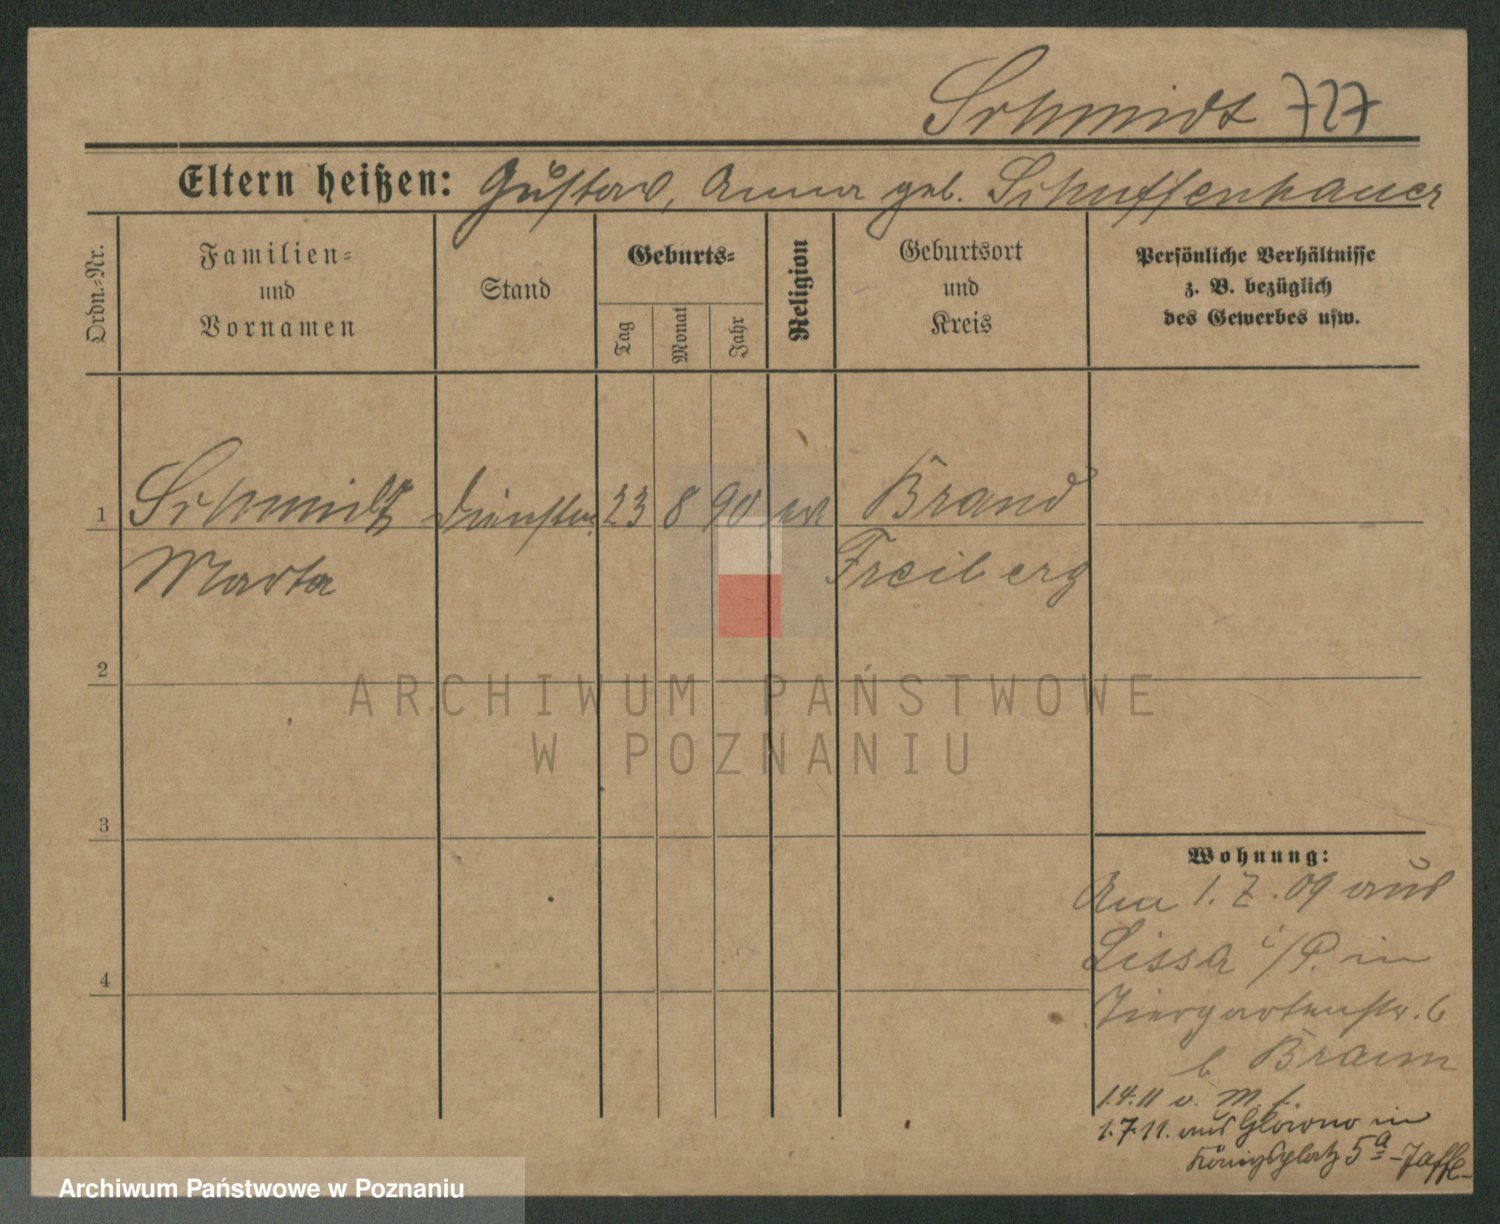 Schmidt 727
Eltern heißen: Gustav, Anna geb. Schuffenhauer
Ordn.-Nr.
Familien- und Vornamen
Stand
Geburts-
Tag
Monat
Jahr
Religion
Geburtsort und Kreis
Persönliche Verhältnisse
z. B. bezüglich
des Gewerbes usw.
1 Schmidt Dienstm. 23 8 90 ev Brand
Marta Freiberg
2
ARCHIWUM PAŃSTWOWE
W POZNANIU
3
Wohnung:
Am 1.7.09 aus
Lissa i/P. in
Tiergartenstr. 6
b Braun
4
1.4.11 v. M. f.
1.7.11. aus Glowno in
Königsplatz 5a - Jaffe -
Archiwum Państwowe w Poznaniu